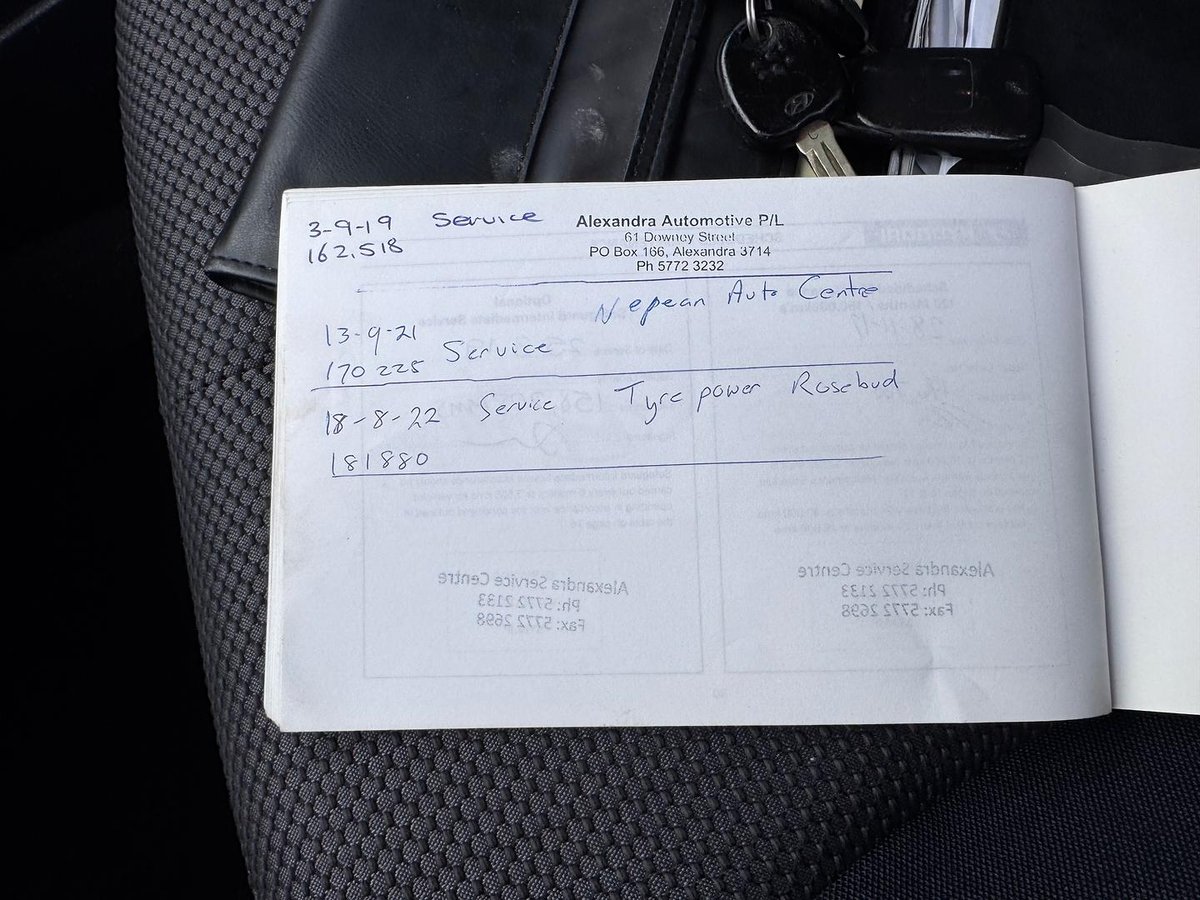 3-9-19 Service
162,518
Alexandra Automotive P/L
61 Downey Street
PO Box 166, Alexandra 3714
Ph 5772 3232
Nepean Auto Centre
13-9-21
170 225 Service
18-8-22 Service Tyre power Rosebud
181880
Alexandra Service Centre
Ph: 5772 2133
Fax: 5772 2698
Alexandra Service Centre
Ph: 5772 2133
Fax: 5772 2698